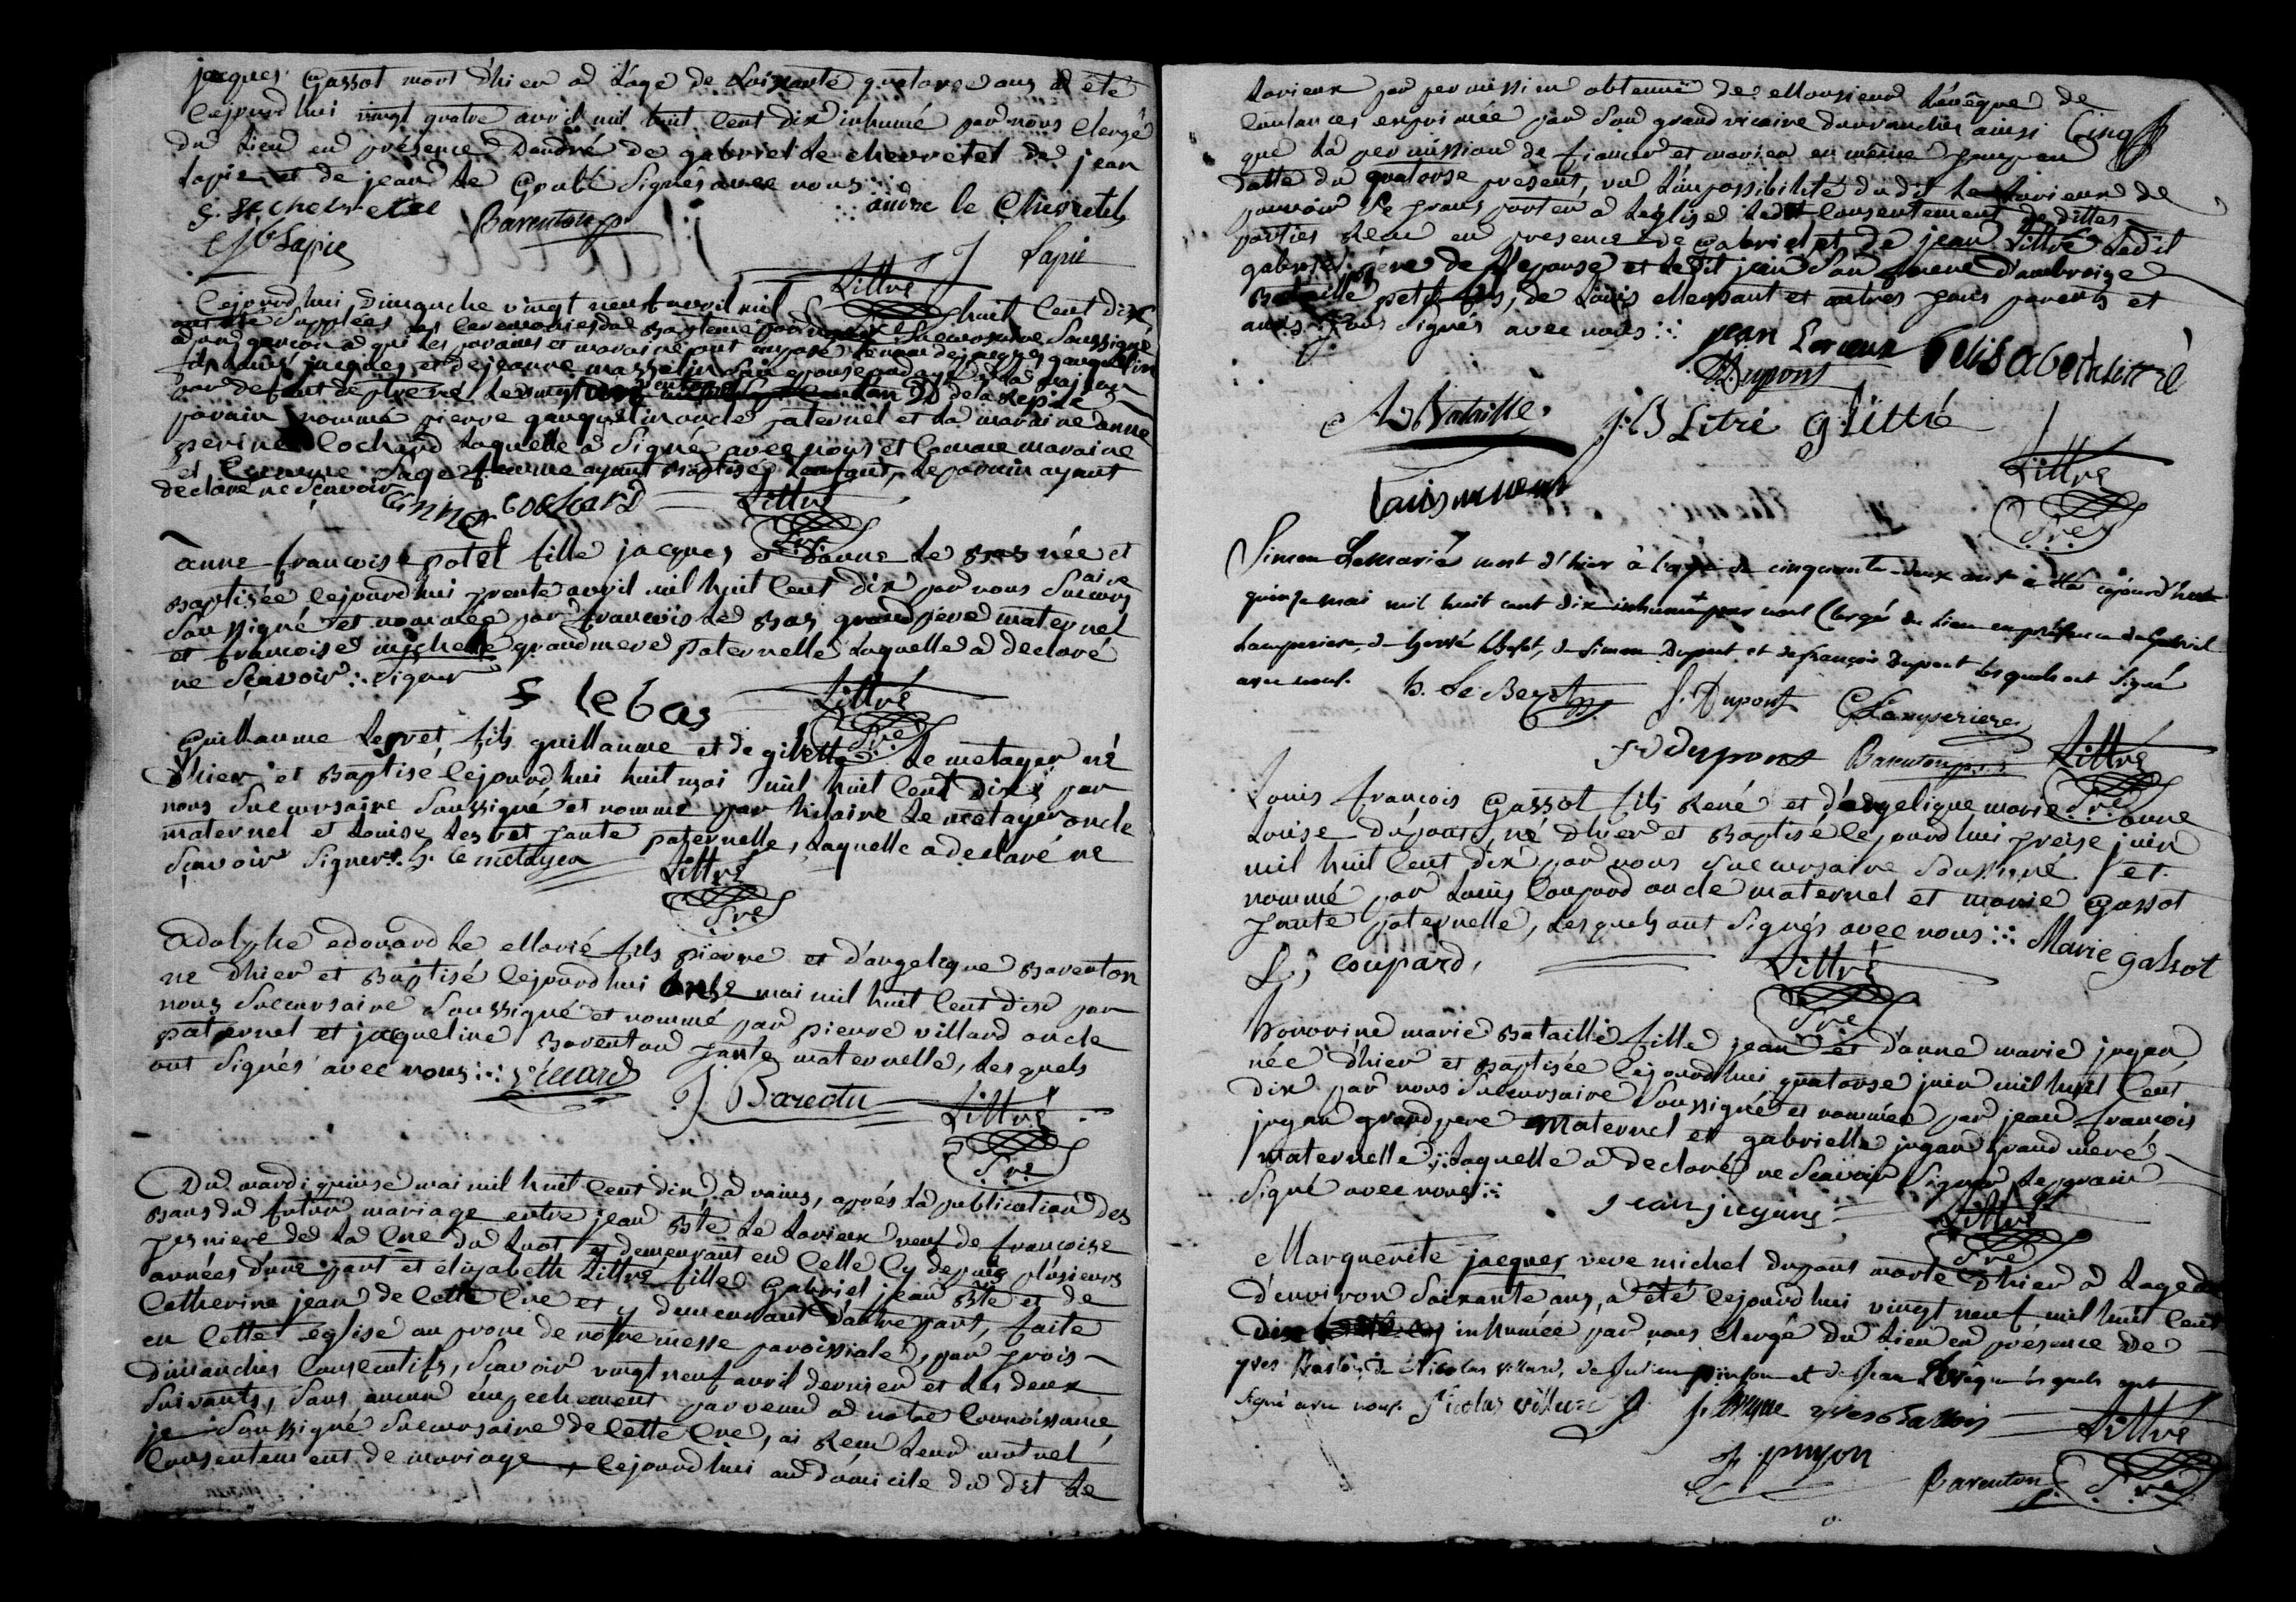 jacques Gassot mort d'hier a L'age de Soixante quatorze ans a été
Cejourd'hui vingt quatre avril mil huit Cent dix inhumé par nous Clergé
du Lieu en presence D'andré de gabriel Le chevretel de jean
Lapie et de jean Le Signés avec nous
andre le Chevretel
Barenton ptre
J Lapie
Littré
Cejourd'hui Dimanche vingt neuf avril mil huit Cent dix
ont été Supplées les Ceremonies du Bapteme par nous Succursaire Soussigné
a un garçon a qui les parains et maraine ont imposé le nom de jacques gauquelin
fils jacques et de jeanne son epouse
par defaut de
parain nommé pierre gauquelin oncle paternel et La maraine anne
perine Cochard Laquelle a Signé avec nous et Comme maraine
et Comme Sage femme ayant Baptisé L'enfant, Le parain ayant
declaré ne Scavoir
anne cochard Littré
Sre
anne françoise potel fille jacques et D'anne Le Bas née et
Baptisée Cejourd'hui trente avril mil huit Cent dix par nous Succursaire
Soussigné et nommée par françois Le Bas grand pere maternel
et françoise michelle grand mere paternelle Laquelle a declaré
ne Scavoir Signer
f lebas Littré
Sre
Guillaume fils guillaume et de gilette Le metayer né
D'hier et Baptisé Cejourd'hui huit mai mil huit Cent dix par
nous Succursaire Soussigné et nommé par hilaire Le metayer oncle
maternel et Louise tante paternelle, Laquelle a declaré ne
Scavoir Signer h. le metayer
Littré
Sre
Adolphe edouard Le Marié fils pierre et d'angelique Barenton
né D'hier et Baptisé Cejourd'hui onze mai mil huit Cent dix par
nous Succursaire Soussigné et nommé par pierre villard oncle
paternel et jacqueline Barenton tante maternelle, Les quels
ont Signés avec nous villard
J Barentu Littré
Sre
Du mardi quinze mai mil huit Cent dix, a vains, après La publication des
Bans du futur mariage entre jean Bte Le Lorieux veuf de françoise
pesniere de La Cne du Luot et demeurant en Celle Cy depuis plusieurs
années d'une part et elizabeth Littré fille Gabriel jean Bte et de
Catherine jean de Cette Cne et y demeurant d'autre part, faite
en Cette eglise au prone de nôtre messe paroissiale, par trois
Dimanches Consecutifs, Scavoir vingt neuf avril dernier et Les deux
Suivants, Sans aucun empechement parvenu a notre Connoissance,
je Soussigné Succursaire de Cette Cne, ai Recu Leur mutuel
Consentement de mariage, Cejourd'hui au domicile du dit Le
Lorieux par permission obtenuë de Monsieur L'évêque de
Coutances exprimée par Son grand vicaire d'avranches ainsi Cinq
que La permission de fiancer et marier en même temps en
datte du quatorse present, vu L'impossibilité du dit Le Lorieux de
pouvoir Se transporter a L'eglise Ledit Consentement desdittes
parties Recu en presence de Gabriel et de jean Littré Ledit
gabriel pere de L'epouse et Ledit jean Son frere d'ambroise
Bataille petit fils, de Louis Mensant et autres tous parents et
amis tous Signés avec nous jean Lorieux
Elisabeth littré
Dupont
A. Bataille j. B Litré g Littré
Littré
Sre
Simon Lemarié mort d'hier à l'age de cinquante-deux ans a été cejourd'hui
quinze mai mil huit cent dix inhumé par nous Clergé du Lieu en présence de Gabriel
Lamperiere, de hervé, de Simon Dupont et de françois Dupont lesquels ont Signé
avec nous.
S. Dupont G Lamperiere
f dupont Barenton ptre Littré
Sre
Louis françois Gassot fils René et d'angelique marie anne
Louise Dupont né D'hier et Baptisé Cejourd'hui treise juin
mil huit Cent dix par nous Succursaire Soussigné et
nommé par Louis Coupard oncle maternel et marie Gassot
tante paternelle, Lesquels ont Signés avec nous Marie gassot
L, coupard, Littré
Sre
honorine marie Bataille fille jean et d'anne marie jugan
née d'hier et Baptisée Cejourd'hui quatorse juin mil huit Cent
dix par nous Succursaire Soussigné et nommée par jean françois
jugan grand pere maternel et gabrielle jugan grand mere
maternelle, Laquelle a declaré ne Scavoir Signer Le parain
Signé avec nous
jean jugans Littré
Sre
Marguerite jacques veve michel dupont morte D'hier a L'age
D'environ Soixante ans, a été Cejourd'hui vingt neuf mil huit Cent
dix inhumée par nous Clergé du Lieu en présence de
yves, de Nicolas villard, de pinson et de Jean Lévêque lesquels ont
Signé avec nous. Nicolas villard
Littré
Barenton Sre